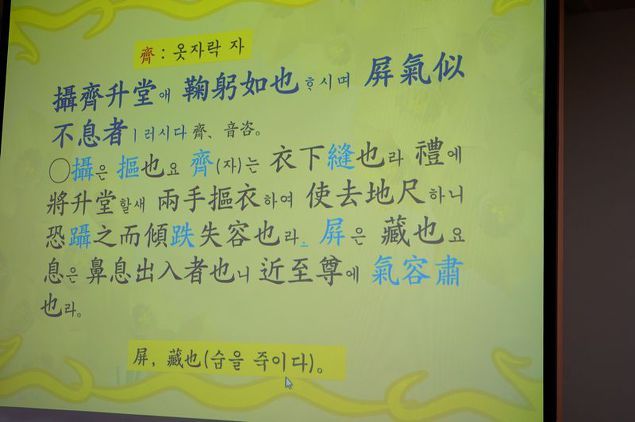 齊 : 옷자락 자
攝齊升堂애 鞠躬如也ᄒᆞ시며 屛氣似
不息者ㅣ러시다 齊、音咨。
○攝은 摳也요 齊(자)는 衣下縫也라 禮에
將升堂할새 兩手摳衣하여 使去地尺하니
恐躡之而傾跌失容也라. 屛은 藏也요
息은 鼻息出入者也니 近至尊에 氣容肅
也라。
屛, 藏也(숨을 죽이다)。